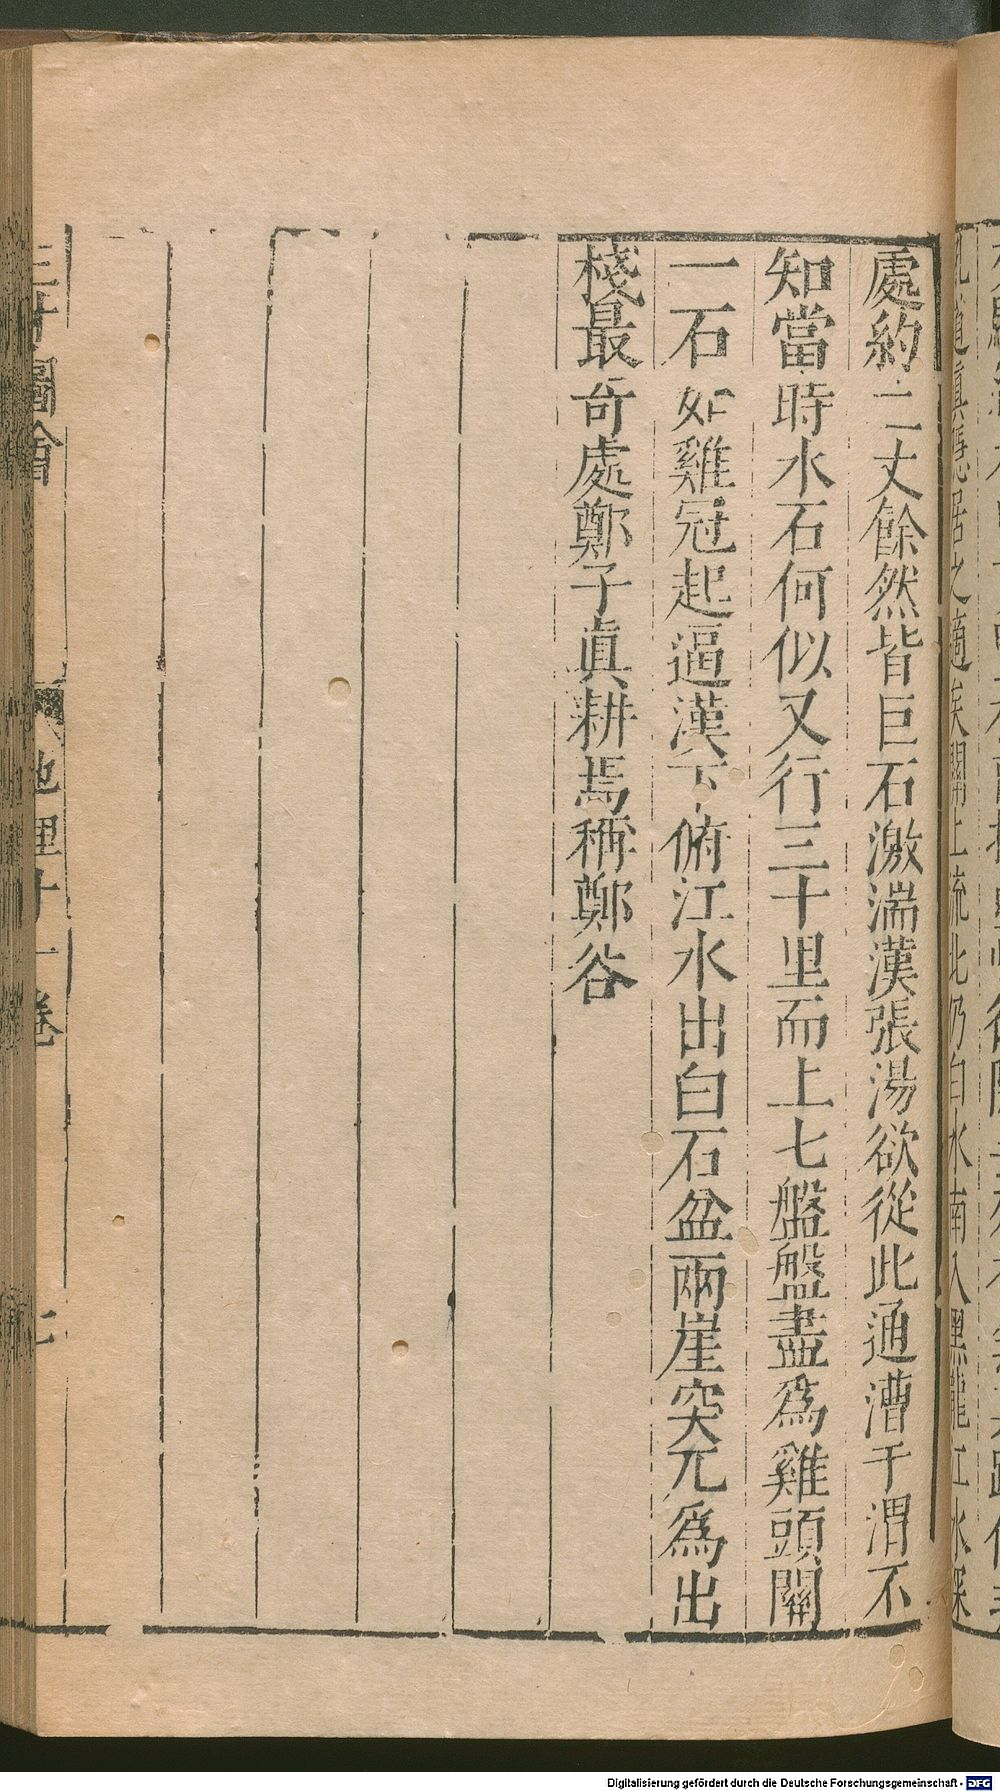 處約二丈餘然皆巨石激湍漢張湯欲從此通漕于渭不
知當時水石何似又行三十里而上七盤盤盡爲雞頭關
一石如雞冠起逼漢下俯江水出白石盆兩崖突兀爲出
棧最奇處鄭子眞耕焉稱鄭谷
三才圖會
地理十一卷
Digitalisierung gefördert durch die Deutsche Forschungsgemeinschaft - DFG